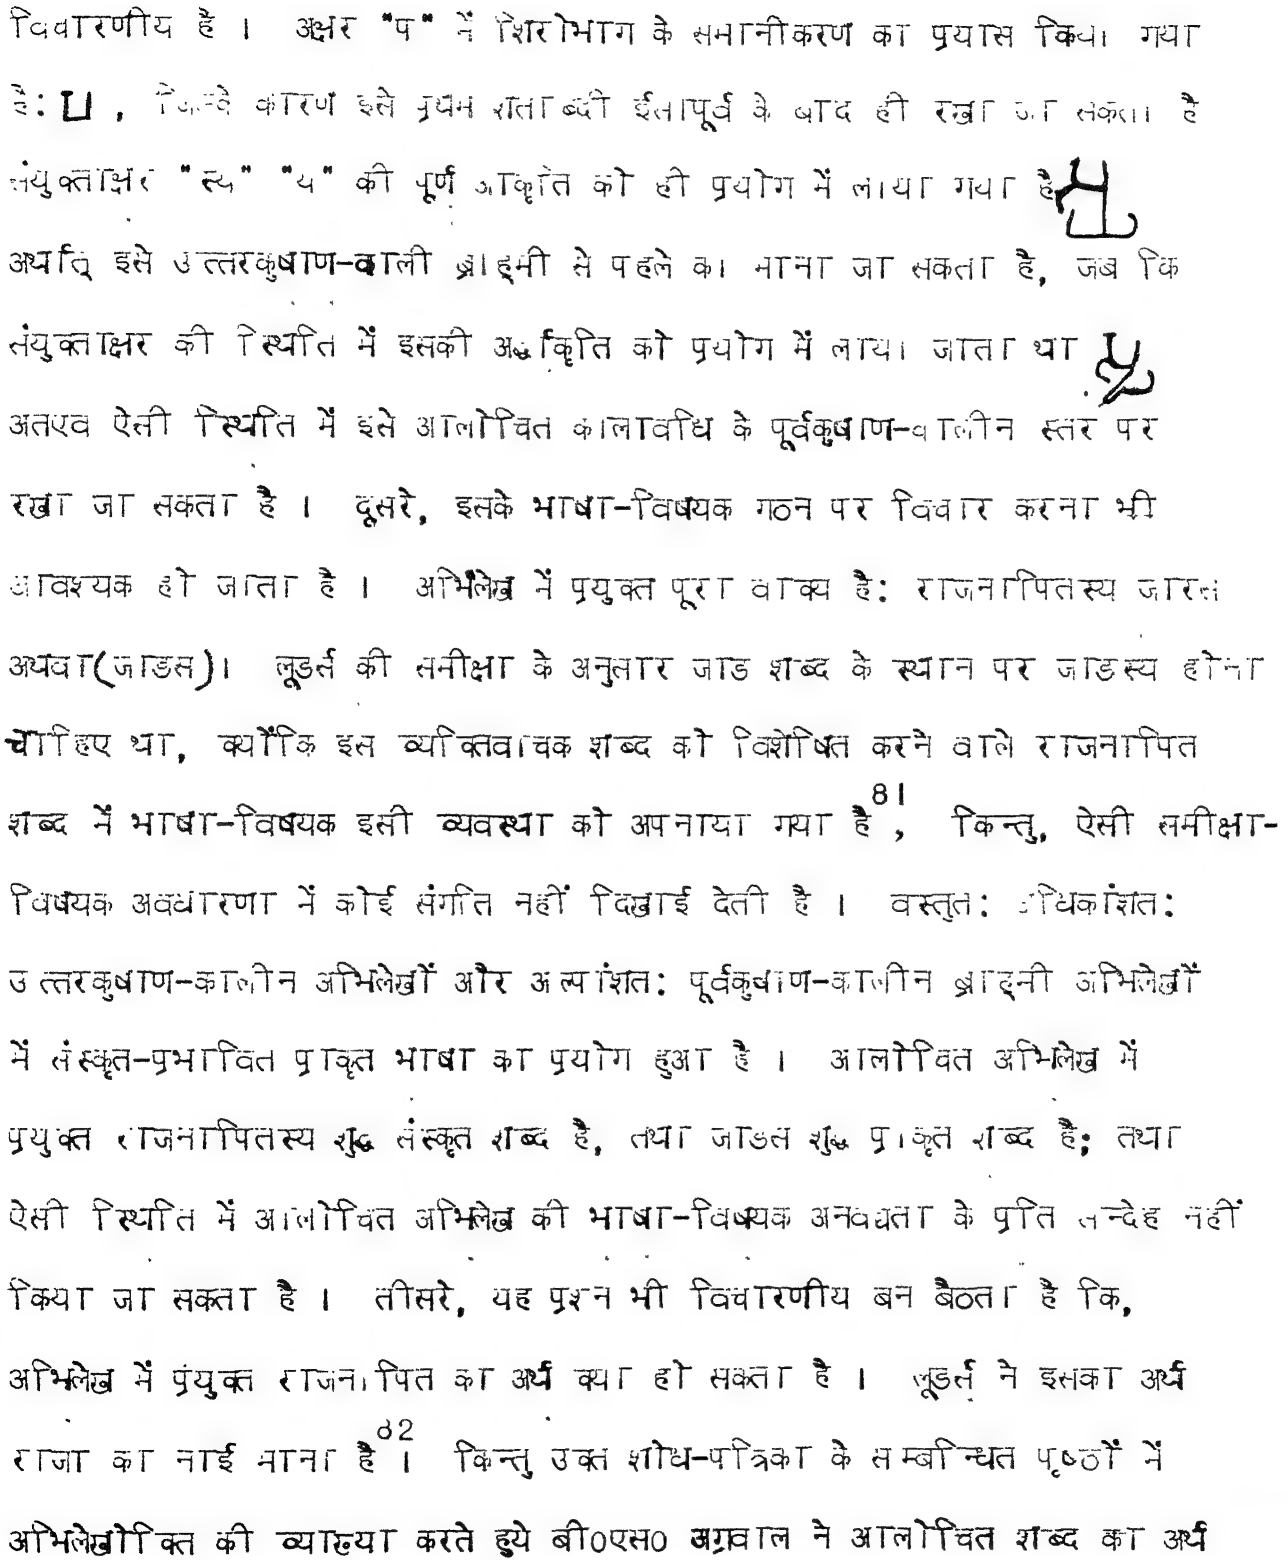 विचारणीय है । अक्षर "प" में शिरोभाग के समानीकरण का प्रयास किया गया
है: , जिसके कारण इसे प्रथम शताब्दी ईसापूर्व के बाद ही रखा जा सकता है
संयुक्ताक्षर "स्य" "य" की पूर्ण आकृति को ही प्रयोग में लाया गया है
अर्थात् इसे उत्तरकुषाण-काली ब्राह्मी से पहले का माना जा सकता है, जब कि
संयुक्ताक्षर की स्थिति में इसकी अर्द्धाकृति को प्रयोग में लाया जाता था
अतएव ऐसी स्थिति में इसे आलोचित कालावधि के पूर्वकुषाण-कालीन स्तर पर
रखा जा सकता है । दूसरे, इसके भाषा-विषयक गठन पर विचार करना भी
आवश्यक हो जाता है । अभिलेख में प्रयुक्त पूरा वाक्य है: राजनापितस्य जारस
अथवा(जाडस)। लूडर्स की समीक्षा के अनुसार जाड शब्द के स्थान पर जाडस्य होना
चाहिए था, क्योंकि इस व्यक्तिवाचक शब्द को विशेषित करने वाले राजनापित
शब्द में भाषा-विषयक इसी व्यवस्था को अपनाया गया है81, किन्तु, ऐसी समीक्षा-
विषयक अवधारणा में कोई संगति नहीं दिखाई देती है । वस्तुत: अधिकांशत:
उत्तरकुषाण-कालीन अभिलेखों और अल्पांशत: पूर्वकुषाण-कालीन ब्राह्मी अभिलेखों
में संस्कृत-प्रभावित प्राकृत भाषा का प्रयोग हुआ है । आलोचित अभिलेख में
प्रयुक्त राजनापितस्य शुद्ध संस्कृत शब्द है, तथा जाडस शुद्ध प्राकृत शब्द है; तथा
ऐसी स्थिति में आलोचित अभिलेख की भाषा-विषयक अनवद्यता के प्रति सन्देह नहीं
किया जा सकता है । तीसरे, यह प्रश्न भी विचारणीय बन बैठता है कि,
अभिलेख में प्रयुक्त राजनापित का अर्थ क्या हो सकता है । लूडर्स ने इसका अर्थ
राजा का नाई माना है82। किन्तु उक्त शोध-पत्रिका के सम्बन्धित पृष्ठों में
अभिलेखोक्ति की व्याख्या करते हुये बी0एस0 अग्रवाल ने आलोचित शब्द का अर्थ